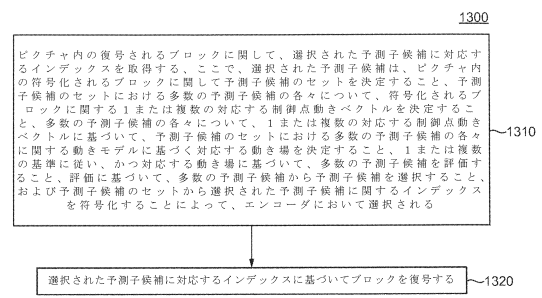 1300
ピクチャ内の復号されるブロックに関して、選択された予測子候補に対応す
るインデックスを取得する、ここで、選択された予測子候補は、ピクチャ内
の符号化されるブロックに関して予測子候補のセットを決定すること、予測
子候補のセットにおける多数の予測子候補の各々について、符号化されるブ
ロックに関する1または複数の対応する制御点動きベクトルを決定するこ
と、多数の予測子候補の各々について、1または複数の対応する制御点動き
ベクトルに基づいて、予測子候補のセットにおける多数の予測子候補の各々
に関する動きモデルに基づく対応する動き場を決定すること、1または複数
の基準に従い、かつ対応する動き場に基づいて、多数の予測子候補を評価す
ること、評価に基づいて、多数の予測子候補から予測子候補を選択すること、
および予測子候補のセットから選択された予測子候補に関するインデックス
を符号化することによって、エンコーダにおいて選択される
1310
選択された予測子候補に対応するインデックスに基づいてブロックを復号する
1320